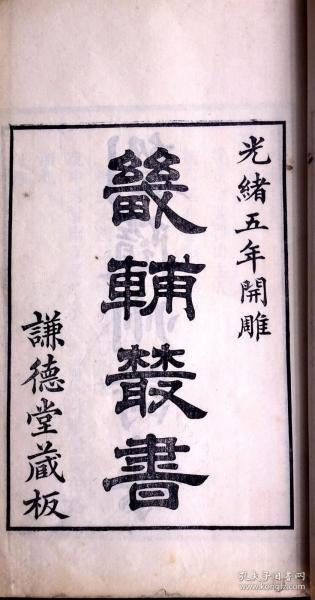 光緒五年開雕
畿輔叢書
謙德堂藏板
孔夫子旧书网